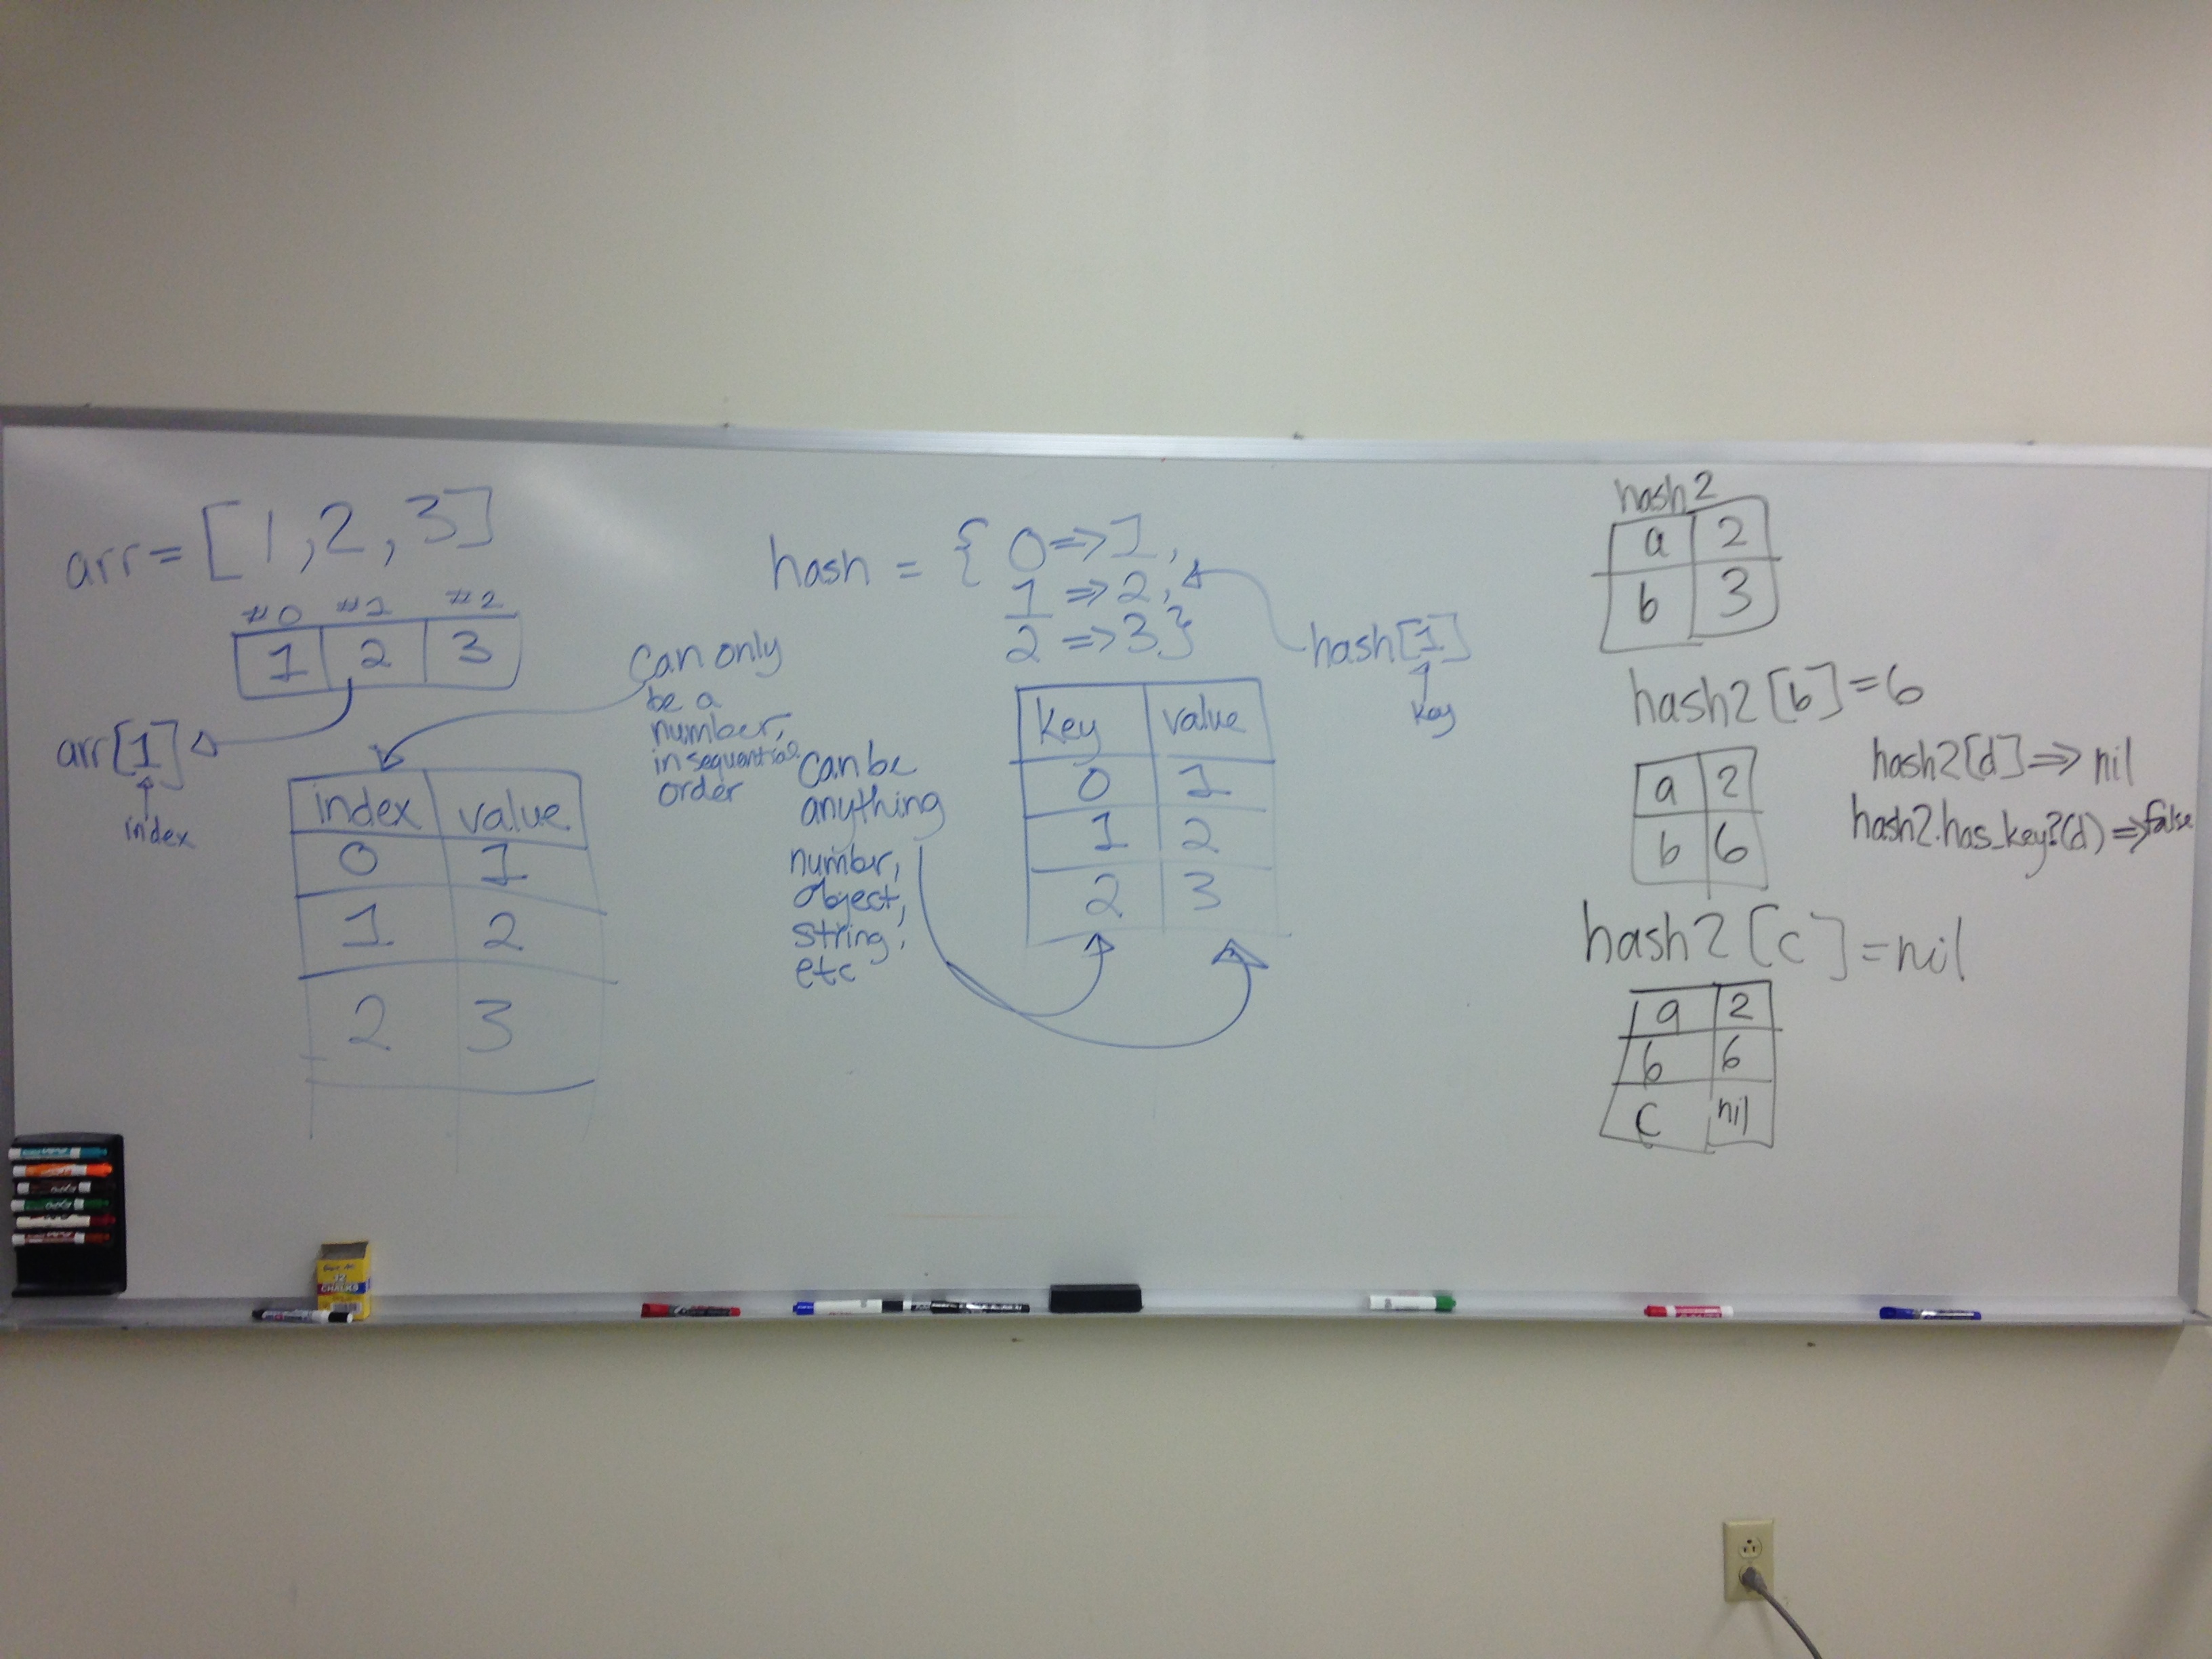 arr = [1,2,3]
#0 #1 #2
1 2 3
arr[1]
index
can only
be a
number,
in sequential
order
index value
0 1
1 2
2 3
hash = { 0 => 1,
1 => 2,
2 => 3 }
hash[1]
key
can be
anything
number,
object,
string,
etc
key value
0 1
1 2
2 3
hash2
a 2
b 3
hash2[b] = 6
a 2
b 6
hash2[d] => nil
hash2.has_key?(d) => false
hash2[c] = nil
a 2
b 6
c nil
12
CHALKS